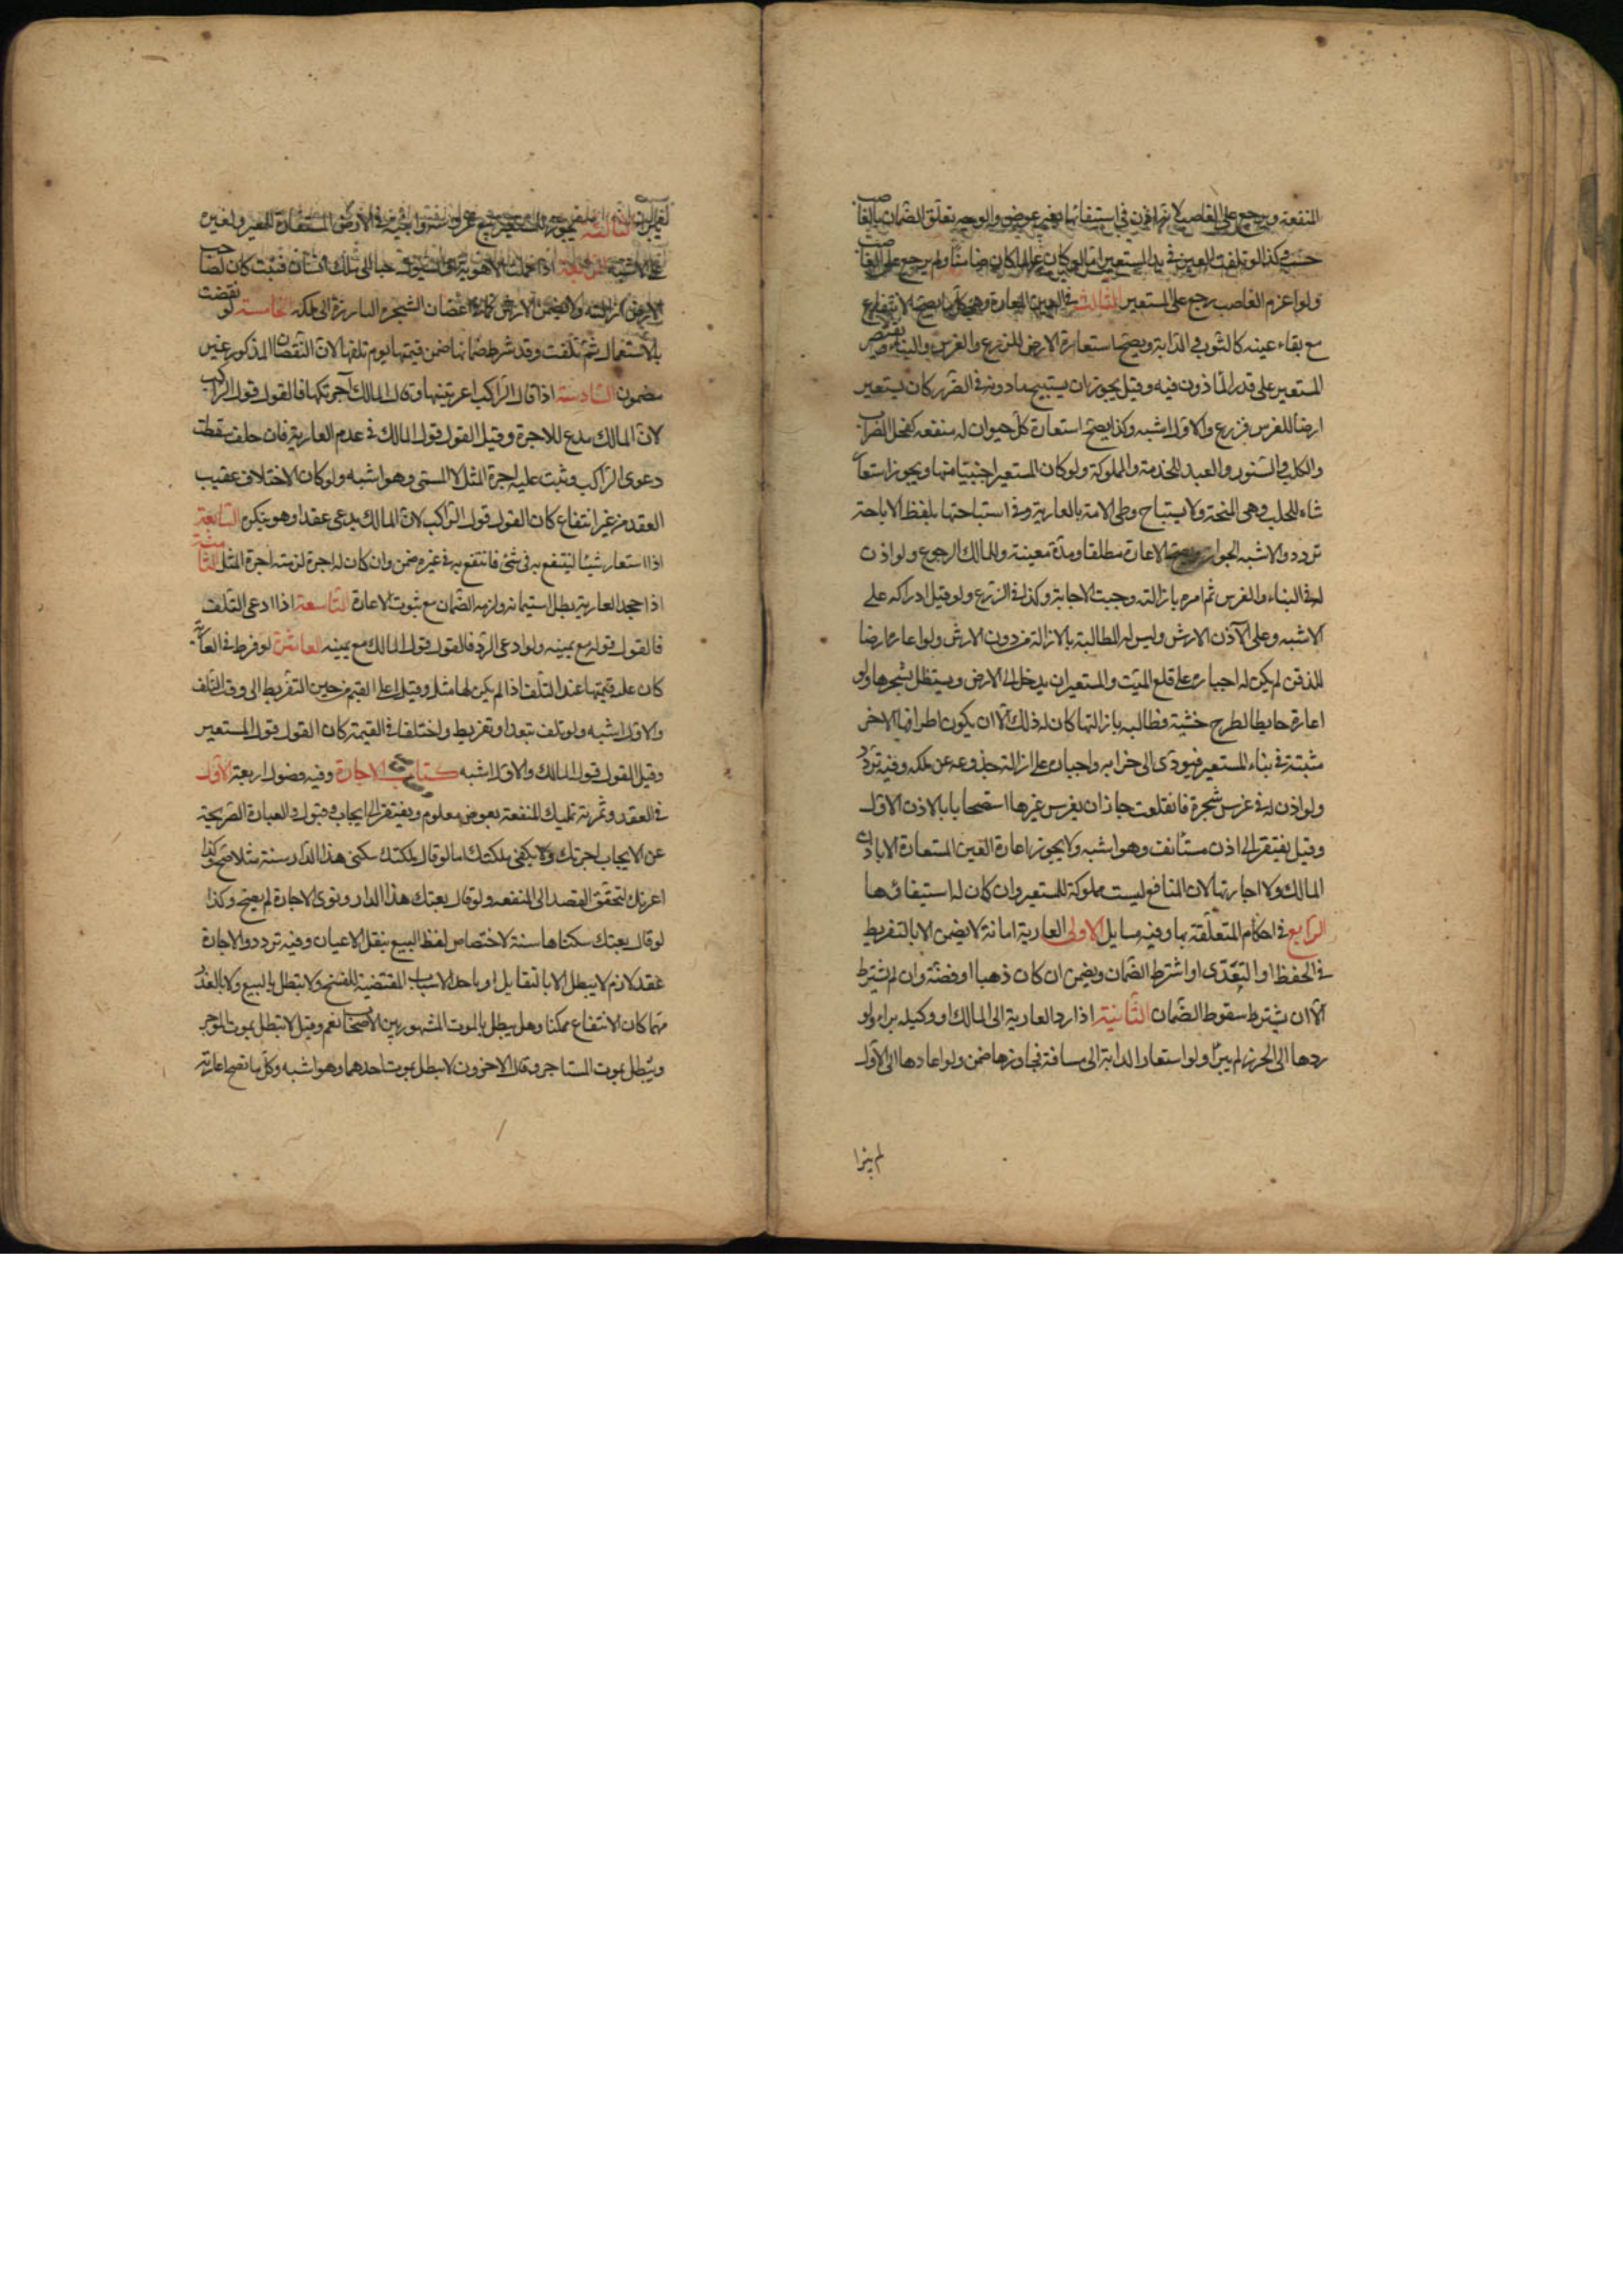 المنفعة ويرجع على الغاصب لانه اذن في استيفائها بغير عوض والوجه تعلق الضمان بالغاصب
حسب وكذا لو تلفت العين في يد المستعير اما لو كان عالما كان ضامنا ولم يرجع على الغاصب
ولو اغرم الغاصب رجع على المستعير الثالث في العين المعارة وهي كل ما يصح الانتفاع
مع بقاء عينه كالثوب والدابة ويصح استعارة الارض للزرع والغرس والبناء ويقتصر
المستعير على قدر الماذون فيه وقيل يجوز ان يستبيح ما دونه في الضرر كان يستعير
ارضا للغرس فزرع والاول اشبه وكذا يصح استعارة كل حيوان له منفعه كفحل الضراب
والكلب والسنور والعبد للخدمة والمملوكة ولو كان المستعير اجنبيا منها ويجوز استعارة
شاه للحلب وهي المنحة ولا يستباح وطى الامة بالعارية وفي استباحتها بلفظ الاباحة
تردد والاشبه الجواز ويصح الاعارة مطلقا ومدة معينة وللمالك الرجوع ولو اذن
له في البناء والغرس ثم امره بازالته وجبت الاجابة وكذا في الزرع ولو قبل ادراكه على
الاشبه وعلى الآذن الارش وليس له المطالبة بالازالة من دون الارش ولو اعاره ارضا
للدفن لم يكن له اجباره على قلع الميت وللمستعير ان يدخل الى الارض ويستظل بشجرها ولو
اعاره حايطا لطرح خشبة فطالبه بازالتها كان له ذلك الا ان يكون اطرافها الاخر
مثبتة في بناء المستعير فيودى الى خرابه واجباره على ازالة جذوعه عن ملكه وفيه تردد
ولو اذن له في غرس شجرة فانقلعت جاز ان يغرس غيرها استصحابا بالاذن الاول
وقيل يفتقر الى اذن مستأنف وهو اشبه ولا يجوز اعارة العين المستعارة الا باذن
المالك ولا اجارتها لان المنافع ليست مملوكة للمستعير وان كان له استيفاؤها
الرابع في احكام المتعلقة بها وفيه مسايل الاولى العارية امانة لا يضمن الا بالتفريط
في الحفظ او التعدى او اشترط الضمان ويضمن ان كان ذهبا او فضة وان لم يشترط
الا ان يشترط سقوط الضمان الثانية اذا رد العارية الى المالك او وكيله برا ولو
ردها الى الحرز لم يبرا ولو استعار الدابة الى مسافة فجاوزها ضمن ولو اعادها الى الاول
لم يبرا
الثالثة يجوز للمستعير بيع غروسه وابنيته في الارض المستعارة للمعير ولغيره
على الاشبه الرابعة اذا حملت الاهوية او السيول حبا الى ملك انسان فنبت كان لصاحب
الارض ازالته ولا يضمن الارش كما في اغصان الشجرة البارزة الى ملكه الخامسة لو نقصت
بالاستعمال ثم تلفت وقد شرط ضمانها ضمن قيمتها يوم تلفها لان النقصان المذكور غير
مضمون السادسة اذا قال الراكب اعرتنيها وقال المالك آجرتكها فالقول قول الراكب
لان المالك مدع للاجرة وقيل القول قول المالك في عدم العارية فان حلف سقطت
دعوى الراكب وثبت عليه اجرة المثل لا المسمى وهو اشبه ولو كان الاختلاف عقيب
العقد من غير انتفاع كان القول قول الراكب لان المالك يدعى عقدا وهو ينكره السابعة
اذا استعار شيئا لينتفع به في شئ فانتفع به في غيره ضمن وان كان له اجرة لزمته اجرة المثل الثامنة
اذا جحد العارية بطل استيمانه ولزمه الضمان مع ثبوت الاعارة التاسعة اذا ادعى التلف
فالقول قوله مع يمينه ولو ادعى الرد فالقول قول المالك مع يمينه العاشرة لو فرط في العارية
كان عليه قيمتها عند التلف اذا لم يكن لها مثل وقيل اعلى القيم من حين التفريط الى وقت التلف
والاول اشبه ولو تلفت بتعد او تفريط واختلفا في القيمة كان القول قول المستعير
وقيل القول قول المالك والاول اشبه كتاب الاجارة وفيه فصول اربعة الاول
في العقد وثمرته تمليك المنفعة بعوض معلوم ويفتقر الى ايجاب وقبول والعبارة الصريحة
عن الايجاب اجرتك ولا يكفى ملكتك اما لو قال ملكتك سكنى هذا الدار سنة مثلا صح وكذا
اعرتك لتحقق القصد الى المنفعه ولو قال بعتك هذا الدار ونوى الاجارة لم يصح وكذا
لو قال بعتك سكناها سنة لاختصاص لفظ البيع بنقل الاعيان وفيه تردد والاجارة
عقد لازم لا يبطل الا بالتقايل او باحد الاسباب المقتضية للفسخ ولا تبطل بالبيع ولا بالعذر
مهما كان الانتفاع ممكنا وهل يبطل بالموت المشهور بين الاصحاب نعم وقيل لا تبطل بموت الموجر
ويبطل بموت المستاجر وقال الاخرون لا يبطل بموت احدهما وهو اشبه وكل ما تصح اعارته